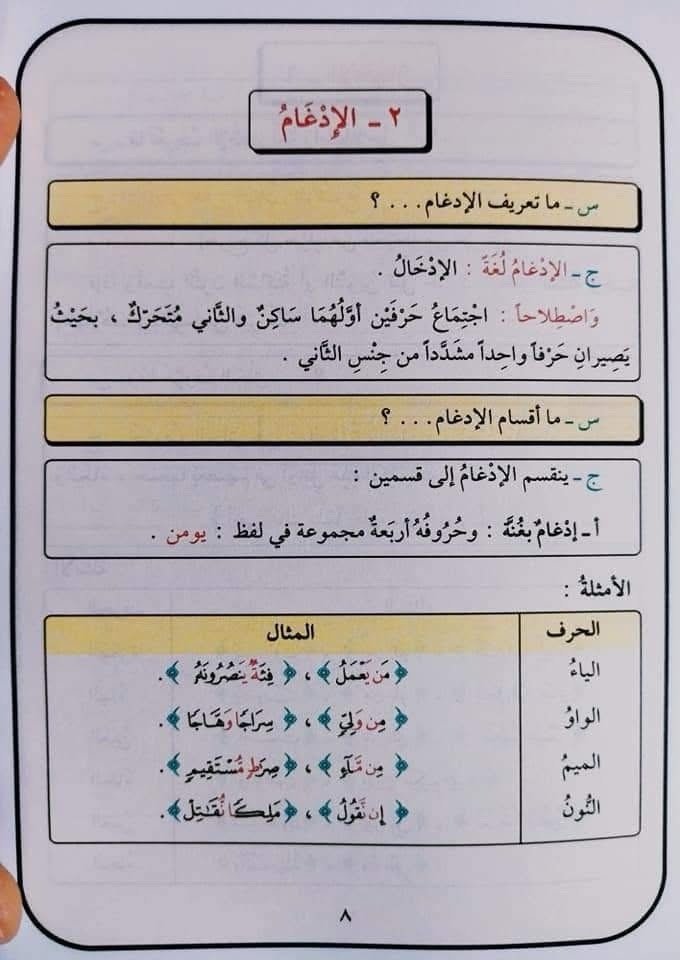 ٢ - الإِدْغَامُ
س - ما تعريف الإدغام . . . ؟
ج - الإِدْغامُ لُغَةً : الإِدْخَالُ .
وَاصْطِلاحاً : اجْتِمَاعُ حَرْفَيْن أوَّلُهُمَا سَاكِنٌ والثَّاني مُتَحَرّكٌ ، بحَيْثُ
يَصِيرانِ حَرْفاً واحِداً مشَدَّداً من جِنْسِ الثَّاني .
س - ما أقسام الإدغام . . . ؟
ج - ينقسم الإدْغامُ إلى قسمين :
أ - إدْغامٌ بغُنَّة : وحُرُوفُهُ أربَعةٌ مجموعة في لفظ : يومن .
الأمثلةُ :
الحرف المثال
الياءُ ﴿ مَن يَعْمَلْ ﴾ ، ﴿ فِئَةٌ يَنصُرُونَهُ ﴾ .
الواوُ ﴿ مِن وَلِيٍّ ﴾ ، ﴿ سِرَاجًا وَهَّاجًا ﴾ .
الميمُ ﴿ مِن مَّآءٍ ﴾ ، ﴿ صِرَٰطٍ مُّسْتَقِيمٍ ﴾ .
النُّونُ ﴿ إِن نَّقُولُ ﴾ ، ﴿ مَلِكًا نُّقَٰتِلْ ﴾ .
٨